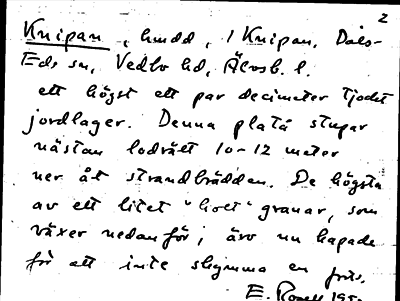 2
Knipan, hmdd, 1 Knipan, Dals-
Eds sn, Vedbo hd, Älvsb. l.
ett högst ett par decimeter tjockt
jordlager. Denna platå stupar
nästan lodrätt 10-12 meter
ner åt strandbrädden. De högsta
av ett litet "hot" granar, som
växer nedanför, äro nu kapade
för att inte skymma en
E.